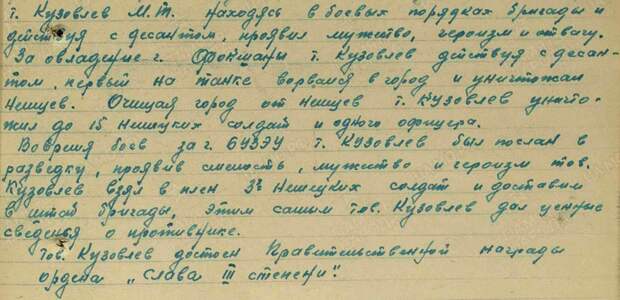 т. Кузовлев М.Т. находясь в боевых порядках бригады и
действуя с десантом, проявил мужество, героизм и отвагу.
За овладение г. Фокшаны т. Кузовлев действуя с десан-
том, первый на танке ворвался в город и уничтожал
немцев. Очищая город от немцев т. Кузовлев уничто-
жил до 15 немецких солдат и одного офицера.
Во время боев за г. БУЗЭУ т. Кузовлев был послан в
разведку, проявив смелость, мужество и героизм тов.
Кузовлев взял в плен 3х немецких солдат и доставил
в штаб бригады, этим самым тов. Кузовлев дал ценные
сведенья о противнике.
Тов. Кузовлев достоен Правительственной награды
ордена „Слава III степени".